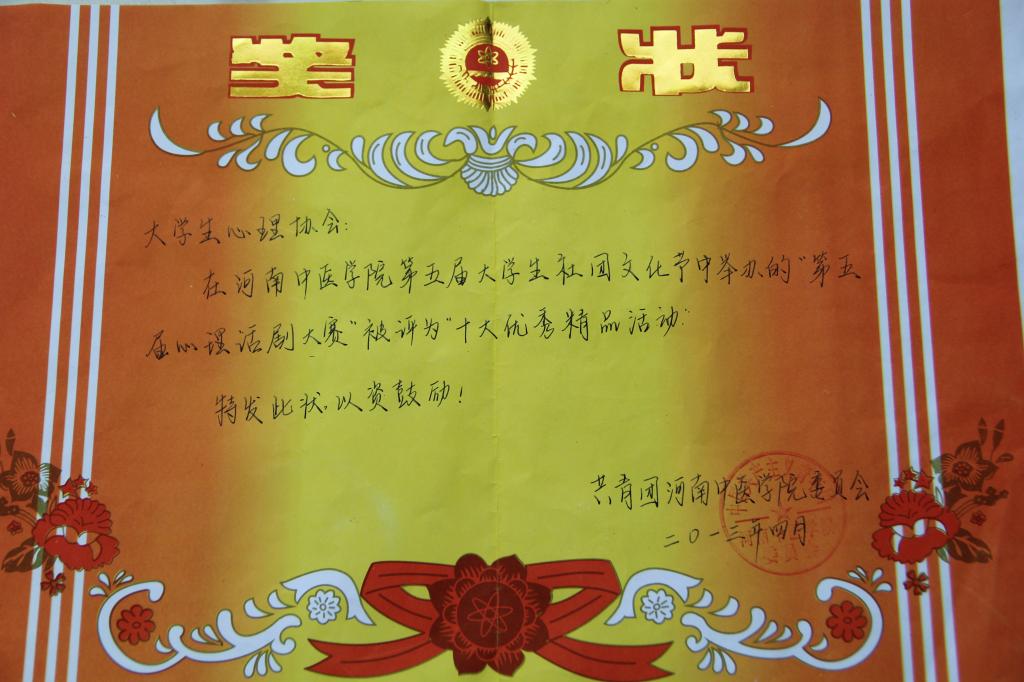 奖状
大学生心理协会:
在河南中医学院第五届大学生社团文化节中举办的“第五
届心理话剧大赛”被评为“十大优秀精品活动”
特发此状,以资鼓励!
共青团河南中医学院委员会
二〇一三年四月